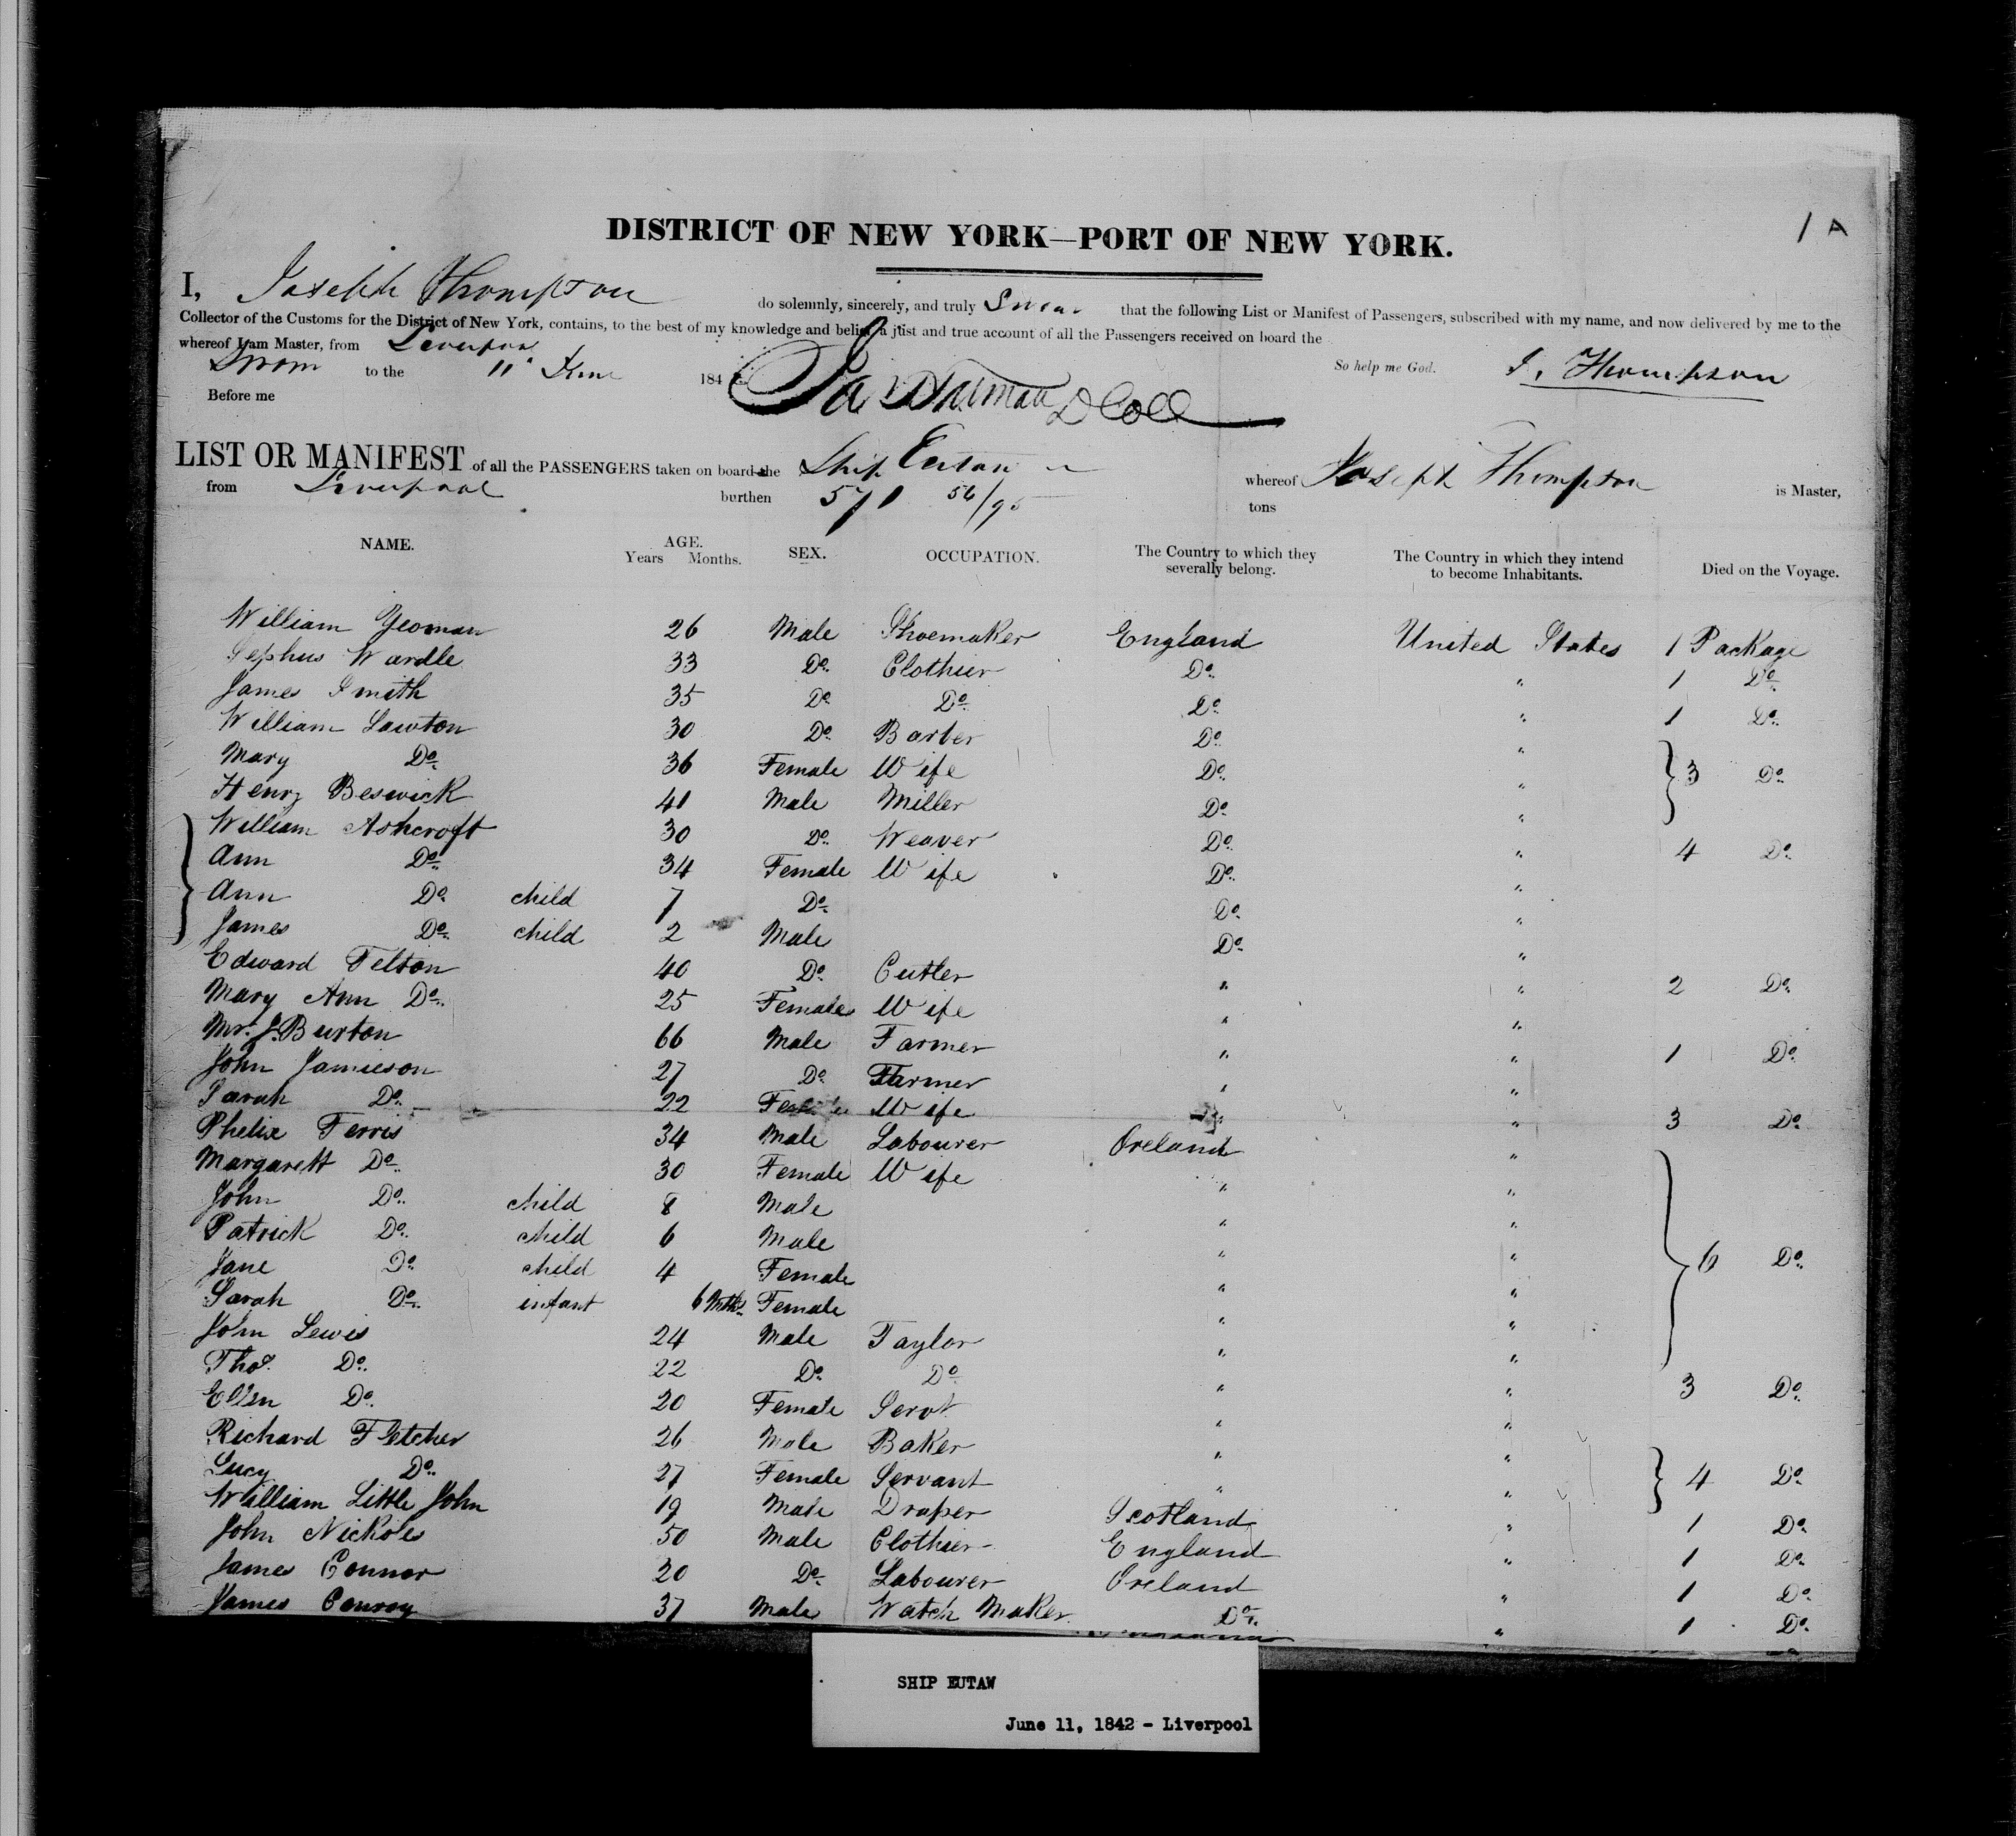 1 A
DISTRICT OF NEW YORK—PORT OF NEW YORK.
I, Joseph Thompson do solemnly, sincerely, and truly Swear that the following List or Manifest of Passengers, subscribed with my name, and now delivered by me to the
Collector of the Customs for the District of New York, contains, to the best of my knowledge and belief, a just and true account of all the Passengers received on board the
whereof I am Master, from Liverpool
Sworn to the 11 June 184 So help me God. J. Thompson
Before me D Coll
LIST OR MANIFEST of all the PASSENGERS taken on board the Ship Eutaw whereof Joseph Thompson is Master,
from Liverpool burthen 571 56/95 tons
NAME. AGE. Years Months. SEX. OCCUPATION. The Country to which they severally belong. The Country in which they intend to become Inhabitants. Died on the Voyage.
William Yeoman 26 Male Shoemaker England United States 1 Package
Sephus Wardle 33 Do. Clothier Do. " 1 Do.
James Smith 35 Do Do. Do " 1 Do.
William Lawton 30 Do. Barber Do. "
Mary Do. 36 Female Wife Do. " 3 Do.
Henry Beswick 41 Male Miller Do. "
William Ashcroft 30 Do. Weaver Do. " 4 Do.
Ann Do. 34 Female Wife Do. "
Ann Do. child 7 Do. Do. "
James Do. child 2 Male Do. "
Edward Felton 40 Do. Cutler " " 2 Do.
Mary Ann Do. 25 Female Wife " "
Mr. J. Burton 66 Male Farmer " " 1 Do.
John Jamieson 27 Do. Farmer " "
Sarah Do. 22 Female Wife " " 3 Do.
Phelix Ferris 34 Male Labourer Ireland "
Margarett Do. 30 Female Wife " "
John Do. child 8 Male " "
Patrick Do. child 6 Male " " 6 Do.
Jane Do child 4 Female " "
Sarah Do. infant 6 Mths. Female " "
John Lewis 24 Male Taylor " "
Thos. Do. 22 Do. Do. " " 3 Do.
Ellen Do. 20 Female Servt. " "
Richard Fletcher 26 Male Baker " "
Lucy Do. 27 Female Servant " " 4 Do.
William Little John 19 Male Draper Scotland " 1 Do.
John Nickols 50 Male Clothier England " 1 Do.
James Connor 20 Do. Labourer Ireland " 1 Do.
James Conroy 37 Male Watch Maker Do. " 1 Do.
SHIP EUTAW
June 11, 1842 - Liverpool